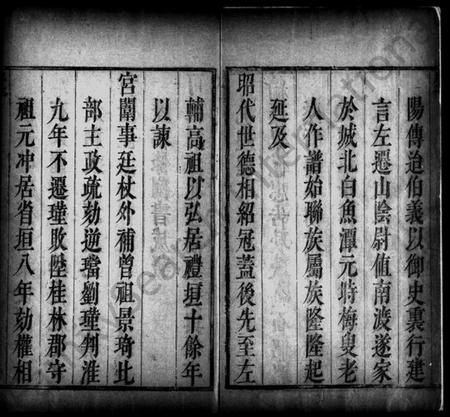 陽傳造伯義以御史裏行建
言左遷山陰尉值南渡遂家
於城北白魚潭元時梅叟老
人作譜始聯族屬族隆隆起
延及
昭代世德相紹冠蓋後先至左
輔高祖以弘居禮垣十餘年
以諫
宮闈事廷杖外補曾祖景琦比
部主政疏劾逆璫劉瑾判淮
九年不遷瑾敗陞桂林郡守
祖元冲居省垣八年劾權相